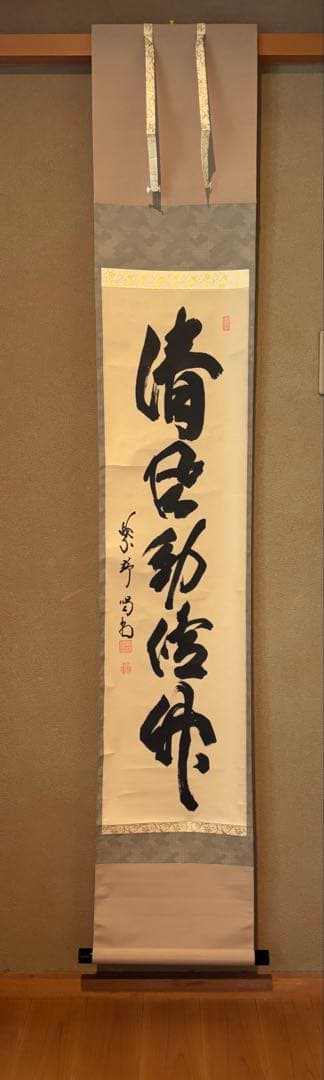 清風動脩竹
紫野